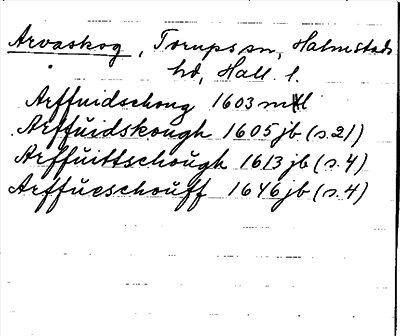 Arvaskog, Torups sn, Halmstads
hd, Hall. l.
Arffuidschoug 1603 mtl
Arffŭidskough 1605 jb (s. 21)
Arffŭittschoŭgh 1613 jb (s. 4)
Arffŭeschoŭff 1646 jb (s. 4)